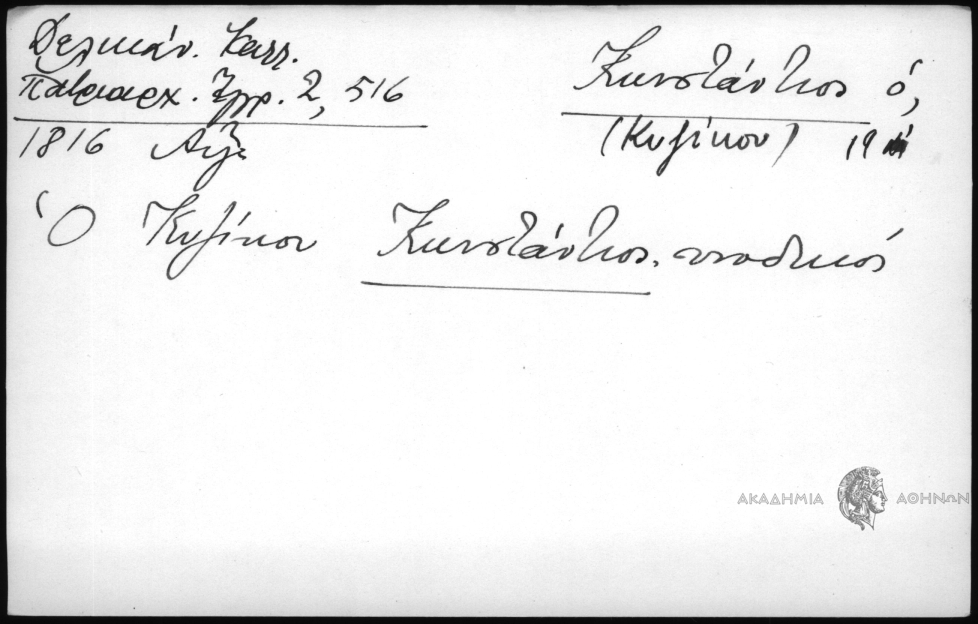 Δελικάν. Καλλ.
Πατριαρχ. Έγγρ. 2, 516
1816 Αὐγ
Κωνστάντιος ὁ,
(Κυζίκου) 19
Ὁ Κυζίκου Κωνστάντιος. συνοδικός
ΑΚΑΔΗΜΙΑ ΑΘΗΝΩΝ